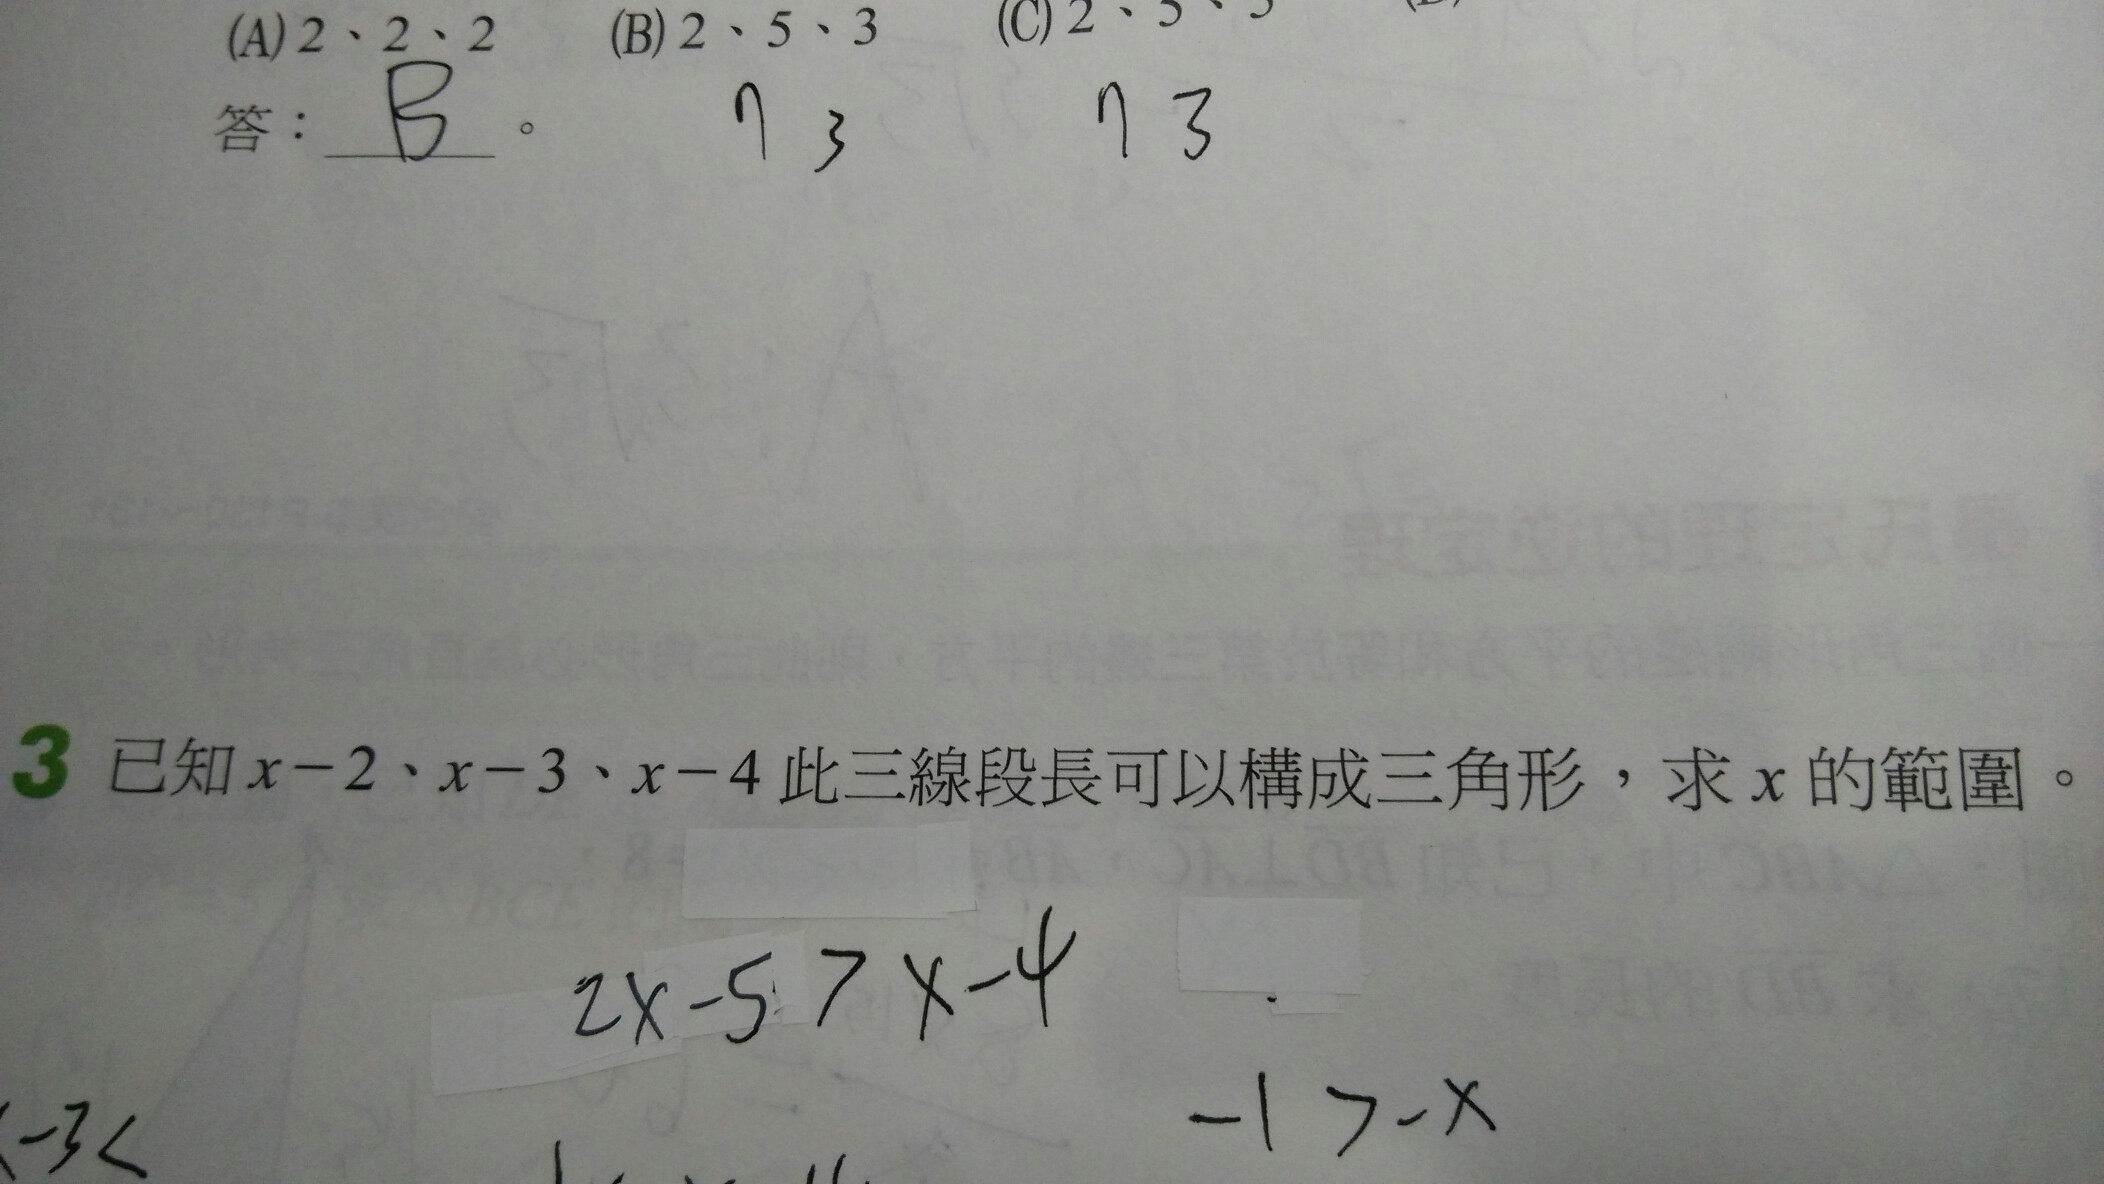 (A) 2、2、2 (B) 2、5、3 (C) 2、5、5
答：B。 7 3 7 3
3 已知 x－2、x－3、x－4 此三線段長可以構成三角形，求 x 的範圍。
2x-5 > x-4
-1 > -x
-3<